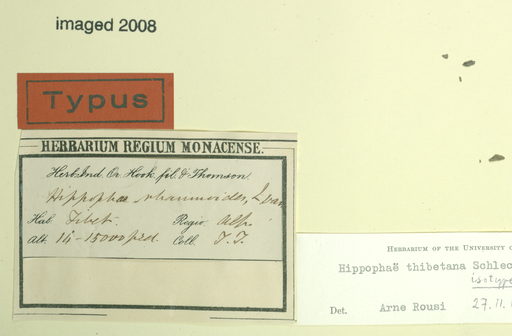 imaged 2008
Typus
HERBARIUM REGIUM MONACENSE.
Herb. Ind. Or. Hook. fil. & Thomson.
Hippophae rhamnoides, L. var.
Hab. Tibet. Regio Alp.
Alt. 14-15000 ped. Coll. T.T.
HERBARIUM OF THE UNIVERSITY O
Hippophaë thibetana Schlec
isotype
Det. Arne Rousi 27.11.